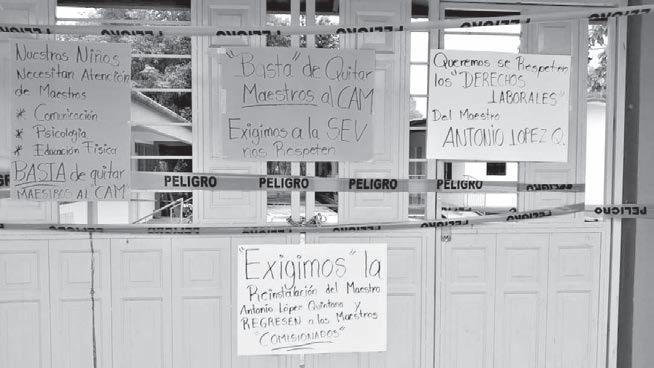 Nuestros Niños
Necesitan Atención
de Maestros
* Comunicación
* Psicologia
* Educación Física
BASTA de quitar
MAESTROS AL CAM
"Basta" de Quitar
Maestros al CAM
Exigimos a la SEV
nos Respeten
Queremos se Respeten
los "DERECHOS
LABORALES"
Del Maestro
ANTONIO LOPEZ Q.
"Exigimos" la
Reinstalación del Maestro
Antonio López Quintana y
REGRESEN a los Maestros
"COMISIONADOS"
PELIGRO
PELIGRO
PELIGRO
PELIGRO
PELIGRO
PELIGRO
PELIGRO
PELIGRO
PELIGRO
PELIGRO
PELIGRO
PELIGRO
PELIGRO
PELIGRO